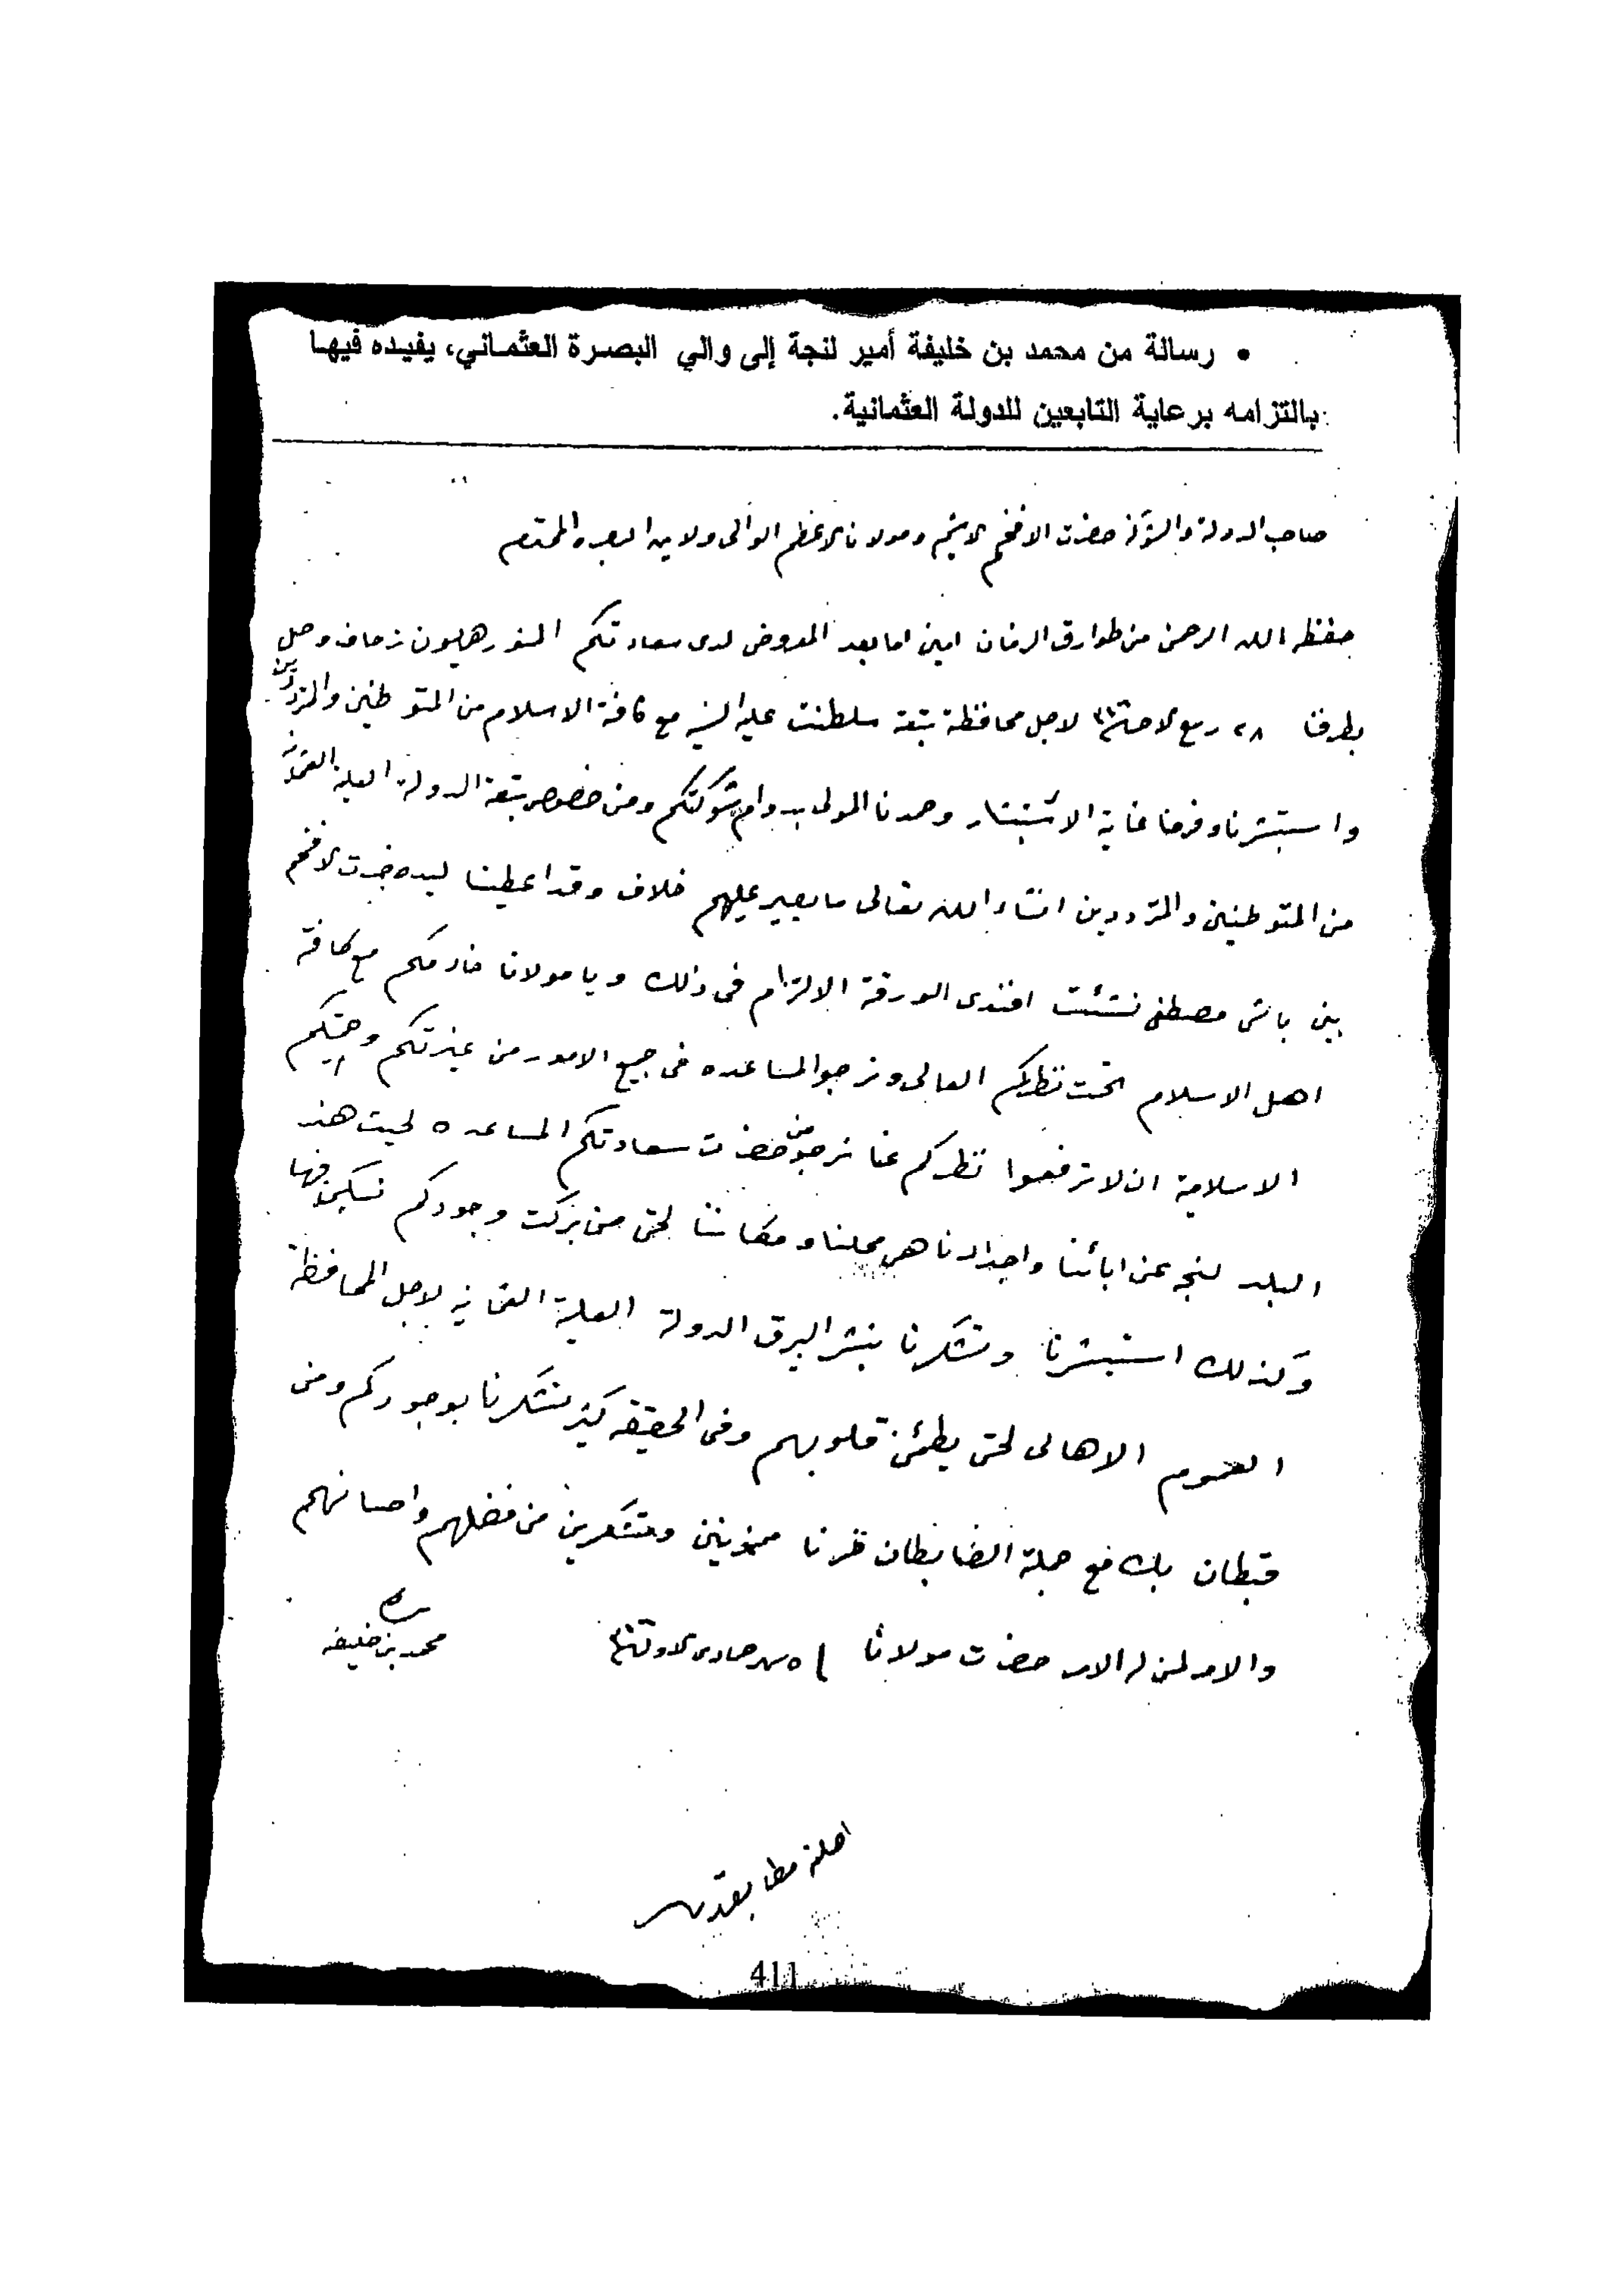 • رسالة من محمد بن خليفة أمير لنجة إلى والي البصرة العثماني، يفيده فيها
بالتزامه برعاية التابعين للدولة العثمانية.
صاحب الدولة حضرت الافخم ومولانا الاعظم الوالى ولاية البصره المحترم
حفظه الله الرحمن من طوارق الزمان امين اما بعد المعروض لدى سعادتكم وصل
بطرفنا ٢٨ ربيع لاجل محافظة تبعة سلطنت مع كافة الاسلام من المتوطنين والمترددين
واستبشرنا وفرحنا غاية الاستبشار وحمدنا المولى بدوام شوكتكم ومن خصوص تبعة الدولة العلية
من المتوطنين والمترددين انشاء الله تعالى ما يصير عليهم خلاف وقد اعطينا الافخم
بين باش مصطفى افندى الورقة الالتزام فى ذلك ويا مولانا خادمكم مع كافة
اهل الاسلام تحت نظركم العالى ونرجو المساعده فى جميع الامور من غيرتكم وحميتكم
الاسلامية ان لا ترفعوا نظركم عنا نرجو من حضرت سعادتكم المساعده لحيث هذه
البلد لنجه عن ابائنا واجدادنا هى محلنا ومكاننا لحتى من بركت وجودكم نسكن فيها
وكذلك استبشرنا وتشكرنا بنشر البيرق الدولة العلية العثمانيه لاجل المحافظة
العموم الاهالى لحتى يطمئن قلوبهم وفى الحقيقه كثير تشكرنا بوجودكم ومن
قبطان بك مع جملة الضابطان ممنونين ومتشكرين من فضلهم واحسانهم
والامر لمن له الامر حضرت مولانا ٥ جمادى الاول
محمد بن خليفه
اصلنه مطابقدر
411